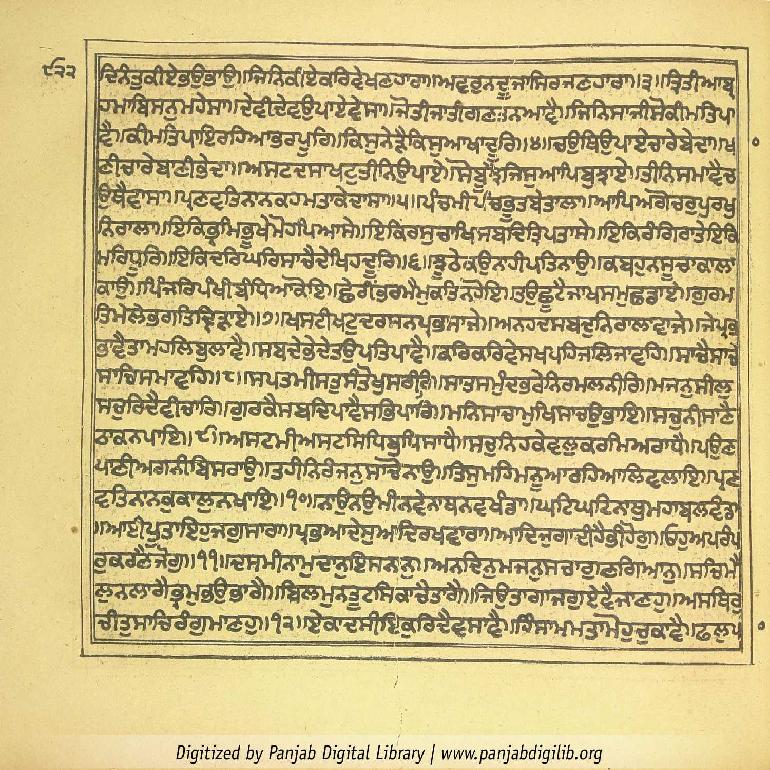 ਦਿਨੰਤੁਕੀਏਭਉਭਾਉ॥ਜਿਨਿਕੀਏਕਰਿਵੇਖਣਹਾਰਾ॥ਅਵਰੁਨਦੂਜਾਸਿਰਜਣਹਾਰਾ॥੩॥ਤ੍ਰਿਤੀਆਬ੍ਰ
ਹਮਾਬਿਸਨੁਮਹੇਸਾ॥ਦੇਵੀਦੇਵਉਪਾਏਵੇਸਾ॥ਜੋਤੀਜਾਤੀਗਣਤਨਆਵੈ॥ਜਿਨਿਸਾਜੀਸੋਕੀਮਤਿਪਾ
ਵੈ॥ਕੀਮਤਿਪਾਇਰਹਿਆਭਰਪੂਰਿ॥ਕਿਸੁਨੇੜੈਕਿਸੁਆਖਾਦੂਰਿ॥੪॥ਚਉਥਿਉਪਾਏਚਾਰੇਬੇਦਾ॥ਖਾ
ਣੀਚਾਰੇਬਾਣੀਭੇਦਾ॥ਅਸਟਦਸਾਖਟੁਤੀਨਿਉਪਾਏ॥ਸੋਬੂਝੈਜਿਸੁਆਪਿਬੁਝਾਏ॥ਤੀਨਿਸਮਾਵੈਚ
ਉਥੈਵਾਸਾ॥ਪ੍ਰਣਵਤਿਨਾਨਕਹਮਤਾਕੇਦਾਸਾ॥੫॥ਪੰਚਮੀਪੰਚਭੂਤਬੇਤਾਲਾ॥ਆਪਿਅਗੋਚਰੁਪੁਰਖੁ
ਨਿਰਾਲਾ॥ਇਕਿਭ੍ਰਮਿਭੂਖੇਮੋਹਪਿਆਸੇ॥ਇਕਿਰਸੁਚਾਖਿਸਬਦਿਤ੍ਰਿਪਤਾਸੇ॥ਇਕਿਰੰਗਿਰਾਤੇਇਕਿ
ਮਰਿਧੂਰਿ॥ਇਕਿਦਰਿਘਰਿਸਾਚੈਦੇਖਿਹਦੂਰਿ॥੬॥ਝੂਠੇਕਉਨਾਹੀਪਤਿਨਾਉ॥ਕਬਹੁਨਸੂਚਾਕਾਲਾ
ਕਾਉ॥ਪਿੰਜਰਿਪੰਖੀਬੰਧਿਆਕੋਇ॥ਛੇਰੀਂਭਰਮੈਮੁਕਤਿਨਹੋਇ॥ਤਉਛੂਟੈਜਾਖਸਮੁਛਡਾਏ॥ਗੁਰਮ
ਤਿਮੇਲੇਭਗਤਿਦ੍ਰਿੜਾਏ॥੭॥ਖਸਟੀਖਟੁਦਰਸਨਪ੍ਰਭਸਾਜੇ॥ਅਨਹਦਸਬਦੁਨਿਰਾਲਾਵਾਜੇ॥ਜੇਪ੍ਰਭ
ਭਾਵੈਤਾਮਹਲਿਬੁਲਾਵੈ॥ਸਬਦੇਭੇਦੇਤਉਪਤਿਪਾਵੈ॥ਕਰਿਕਰਿਵੇਸਖਪਹਿਜਲਿਜਾਵਹਿ॥ਸਾਚੈਸਾਚੇ
ਸਾਚਿਸਮਾਵਹਿ॥੮॥ਸਪਤਮੀਸਤੁਸੰਤੋਖੁਸਰੀਰਿ॥ਸਾਤਸਮੁੰਦਭਰੇਨਿਰਮਲਨੀਰਿ॥ਮਜਨੁਸੀਲੁ
ਸਚੁਰਿਦੈਵੀਚਾਰਿ॥ਗੁਰਕੈਸਬਦਿਪਾਵੈਸਭਿਪਾਰਿ॥ਮਨਿਸਾਚਾਮੁਖਿਸਾਚਉਭਾਇ॥ਸਚੁਨੀਸਾਣੈ
ਠਾਕਨਪਾਇ॥੯॥ਅਸਟਮੀਅਸਟਸਿਧਿਬੁਧਿਸਾਧੈ॥ਸਚੁਨਿਹਕੇਵਲੁਕਰਮਿਅਰਾਧੈ॥ਪਉਣ
ਪਾਣੀਅਗਨੀਬਿਸਰਾਉ॥ਤਹੀਨਿਰੰਜਨੁਸਾਚੋਨਾਉ॥ਤਿਸੁਮਹਿਮਨੂਆਰਹਿਆਲਿਵਲਾਇ॥ਪ੍ਰਣ
ਵਤਿਨਾਨਕੁਕਾਲੁਨਖਾਇ॥੧੦॥ਨਾਉਨਉਮੀਨਵੇਨਾਥਨਵਖੰਡਾ॥ਘਟਿਘਟਿਨਾਥੁਮਹਾਬਲਵੰਡਾ
॥ਆਈਪੂਤਾਇਹੁਜਗੁਸਾਰਾ॥ਪ੍ਰਭਆਦੇਸੁਆਦਿਰਖਵਾਰਾ॥ਆਦਿਜੁਗਾਦੀਹੈਭੀਹੋਗੁ॥ਓਹੁਅਪਰੰਪ
ਰੁਕਰਣੈਜੋਗੁ॥੧੧॥ਦਸਮੀਨਾਮੁਦਾਨੁਇਸਨਾਨੁ॥ਅਨਦਿਨੁਮਜਨੁਸਚਾਗੁਣਗਿਆਨੁ॥ਸਚਿਮੈ
ਲੁਨਲਾਗੈਭ੍ਰਮੁਭਉਭਾਗੈ॥ਬਿਲਮੁਨਤੂਟਸਿਕਾਚੈਤਾਗੈ॥ਜਿਉਤਾਗਾਜਗੁਏਵੈਜਾਣਹੁ॥ਅਸਥਿਰੁ
ਚੀਤੁਸਾਚਿਰੰਗੁਮਾਣਹੁ॥੧੨॥ਏਕਾਦਸੀਇਕੁਰਿਦੈਵਸਾਵੈ॥ਹਿੰਸਾਮਮਤਾਮੋਹੁਚੁਕਾਵੈ॥ਫਲੁਪ
Digitized by Panjab Digital Library | www.panjabdigilib.org